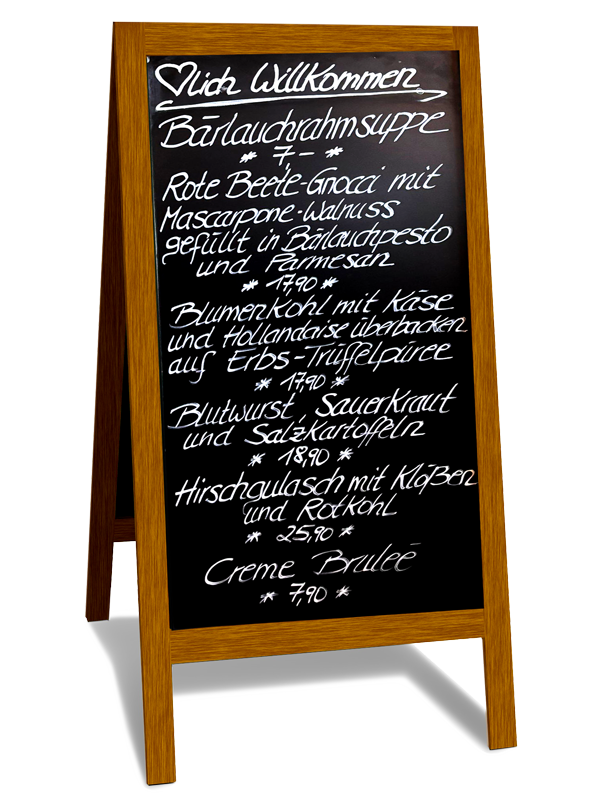 ♥lich Willkommen
Bärlauchrahmsuppe
* 7,- *
Rote Beete-Gnocci mit
Mascarpone-Walnuss
gefüllt in Bärlauchpesto
und Parmesan
* 17,90 *
Blumenkohl mit Käse
und Hollandaise überbacken
auf Erbs-Trüffelpüree
* 17,90 *
Blutwurst, Sauerkraut
und Salzkartoffeln
* 18,90 *
Hirschgulasch mit Klößen
und Rotkohl
* 25,90 *
Creme Bruleé
* 7,90 *